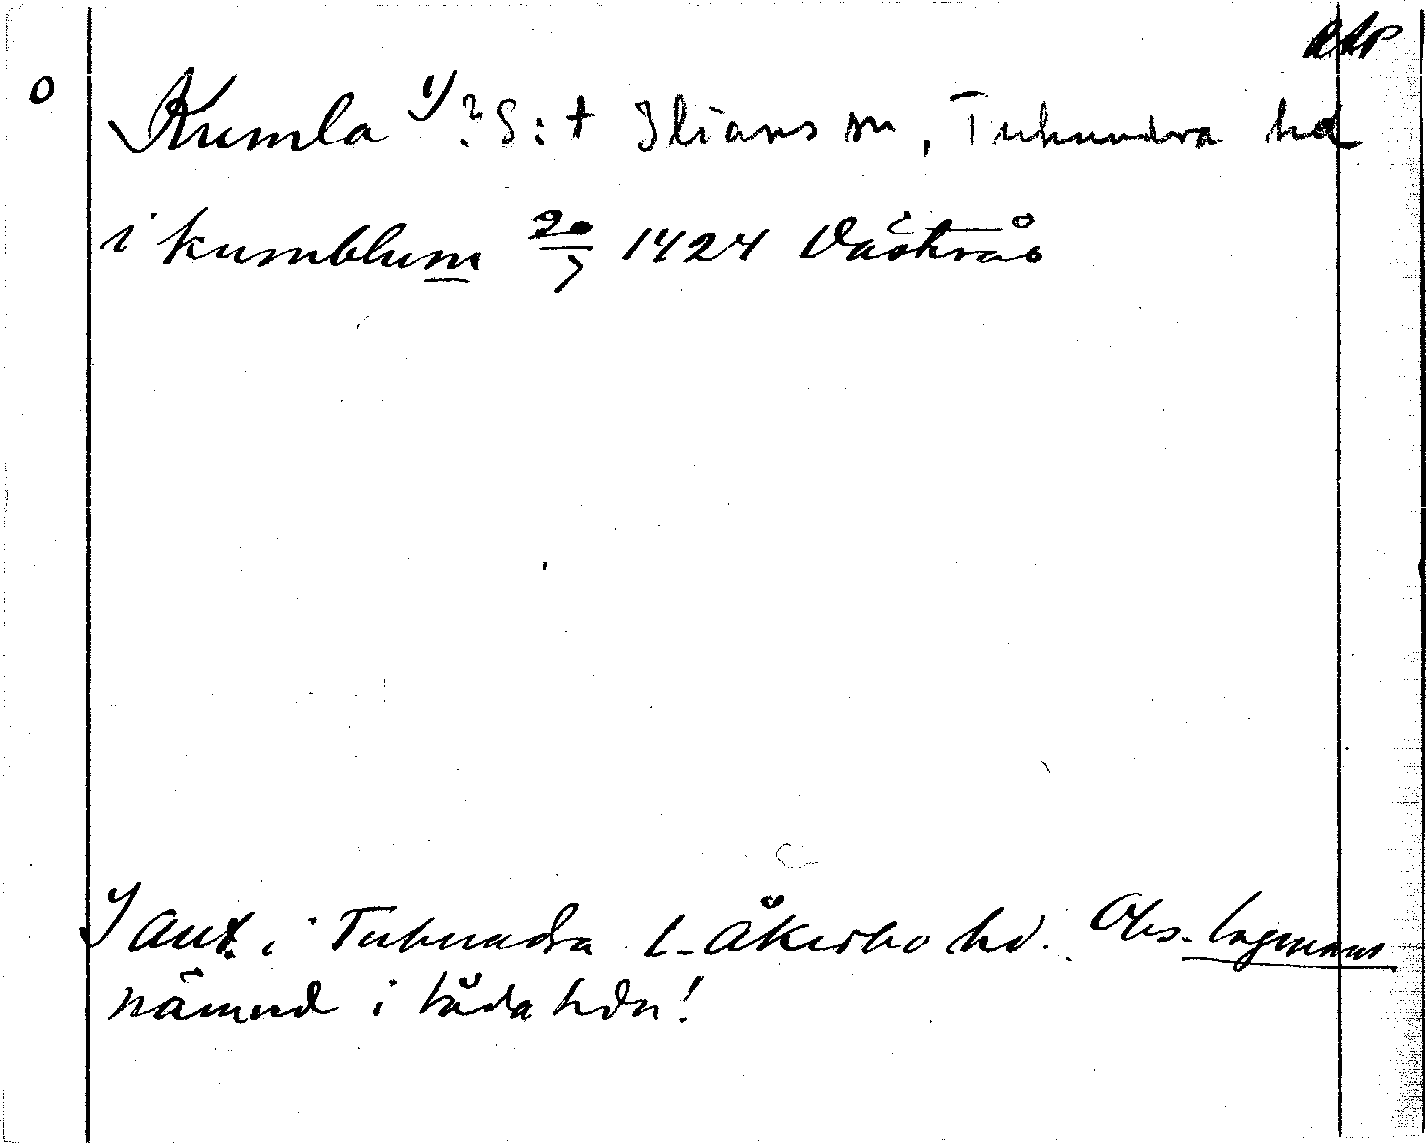 RAP
o
Kumla y) ? S:t Ilians sn, Tuhundra hd
i kumblum 20/7 1424 Västrås
y) ant. i Tuhundra l. Åkerbo hd. Obs. lagmans
nämnd i båda hdn!